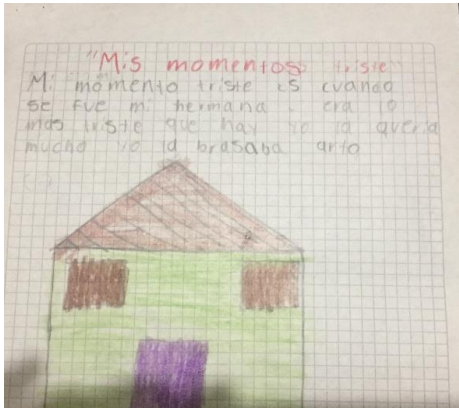 "Mis momentos triste"
Mi momento triste es cuando
se fue mi hermana . era lo
mas triste que hay yo la queria
mucho yo la brasaba arto